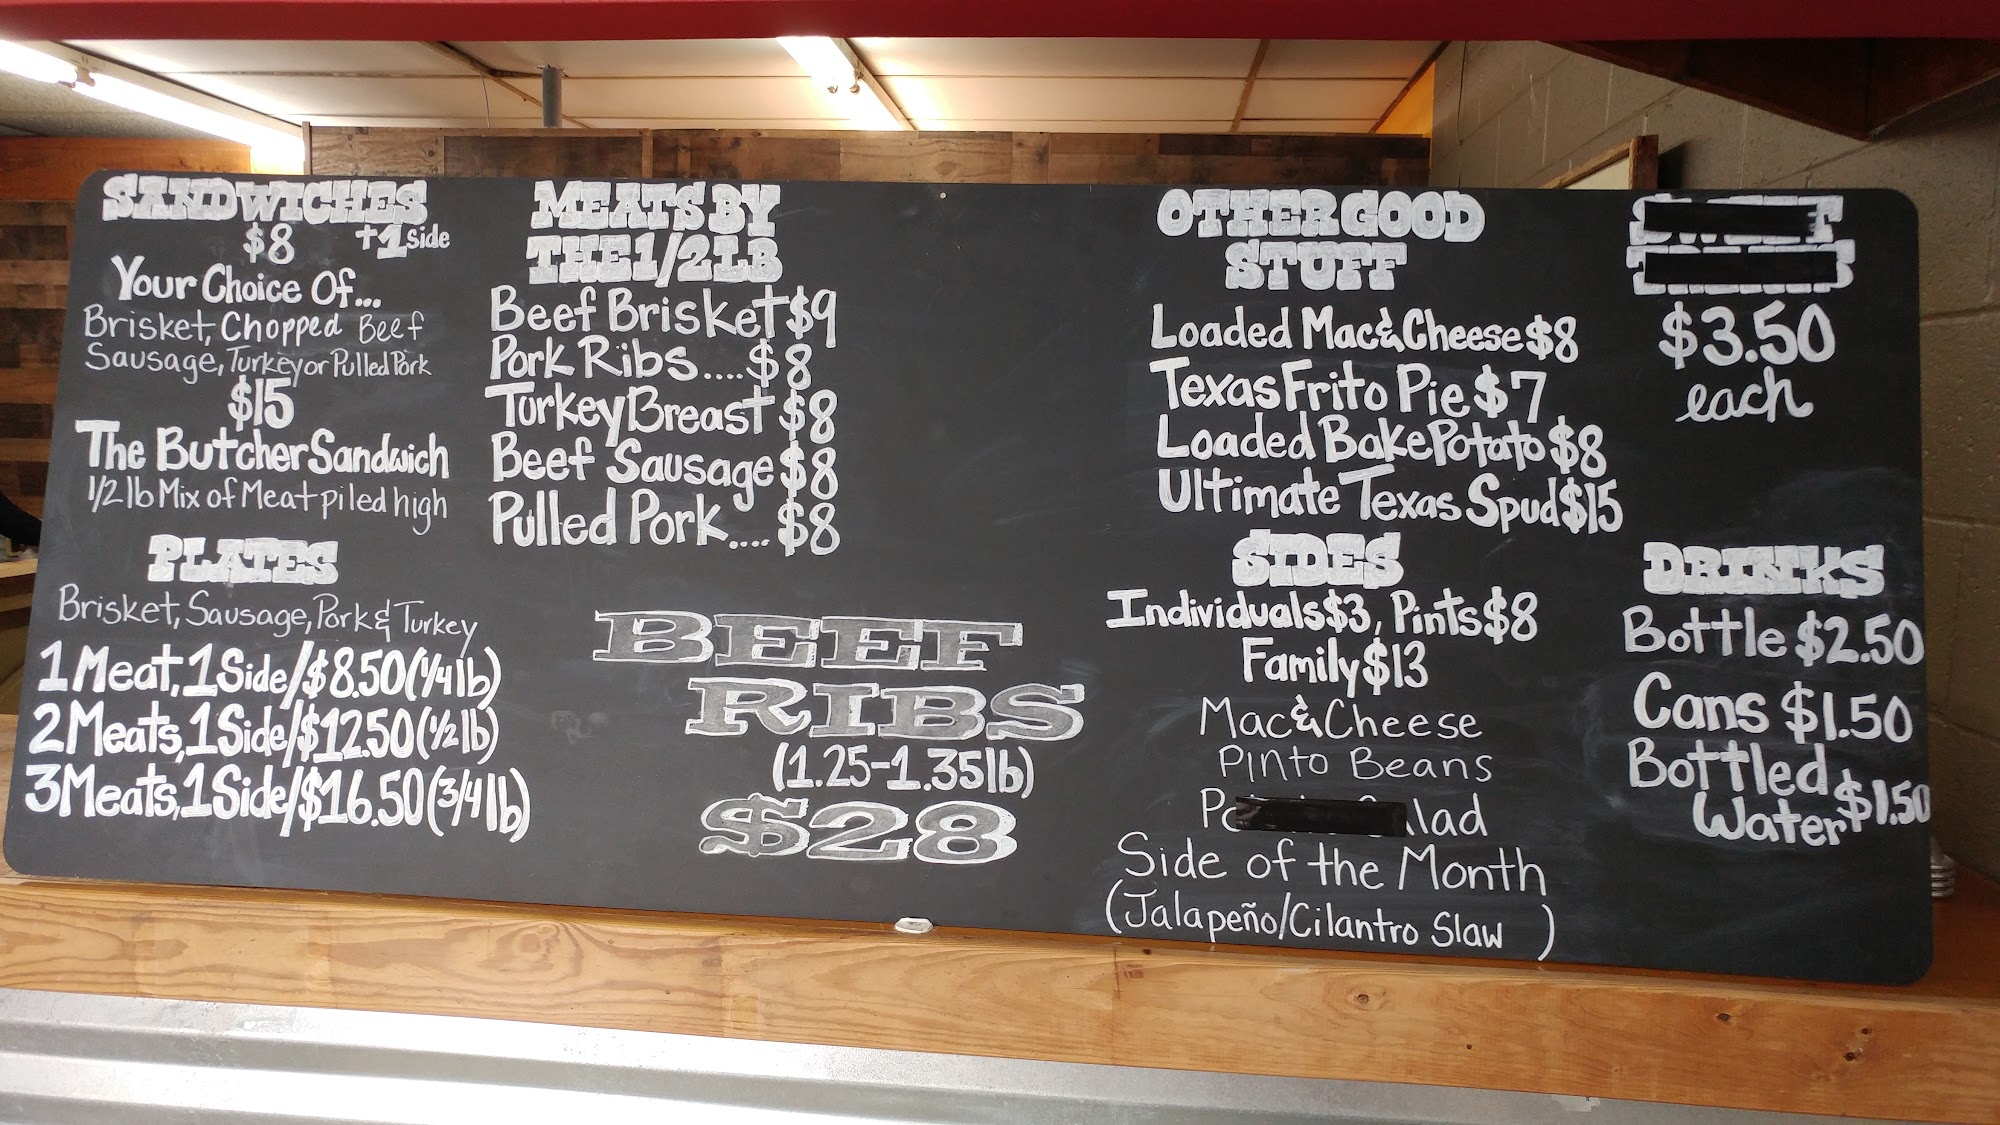 SANDWICHES
$8 +1 side
Your Choice Of...
Brisket, Chopped Beef
Sausage, Turkey or Pulled Pork
$15
The Butcher Sandwich
1/2 lb Mix of Meat piled high
PLATES
Brisket, Sausage, Pork & Turkey
1 Meat, 1 Side/$8.50 (1/4 lb)
2 Meats, 1 Side/$12.50 (1/2 lb)
3 Meats, 1 Side/$16.50 (3/4 lb)
MEATS BY
THE 1/2 LB
Beef Brisket $9
Pork Ribs....$8
Turkey Breast $8
Beef Sausage $8
Pulled Pork....$8
BEEF
RIBS
(1.25-1.35lb)
$28
OTHER GOOD
STUFF
Loaded Mac & Cheese $8
Texas Frito Pie $7
Loaded Bake Potato $8
Ultimate Texas Spud $15
SIDES
Individuals $3, Pints $8
Family $13
Mac & Cheese
Pinto Beans
Side of the Month
(Jalapeño/Cilantro Slaw )
$3.50
each
DRINKS
Bottle $2.50
Cans $1.50
Bottled
Water $1.50